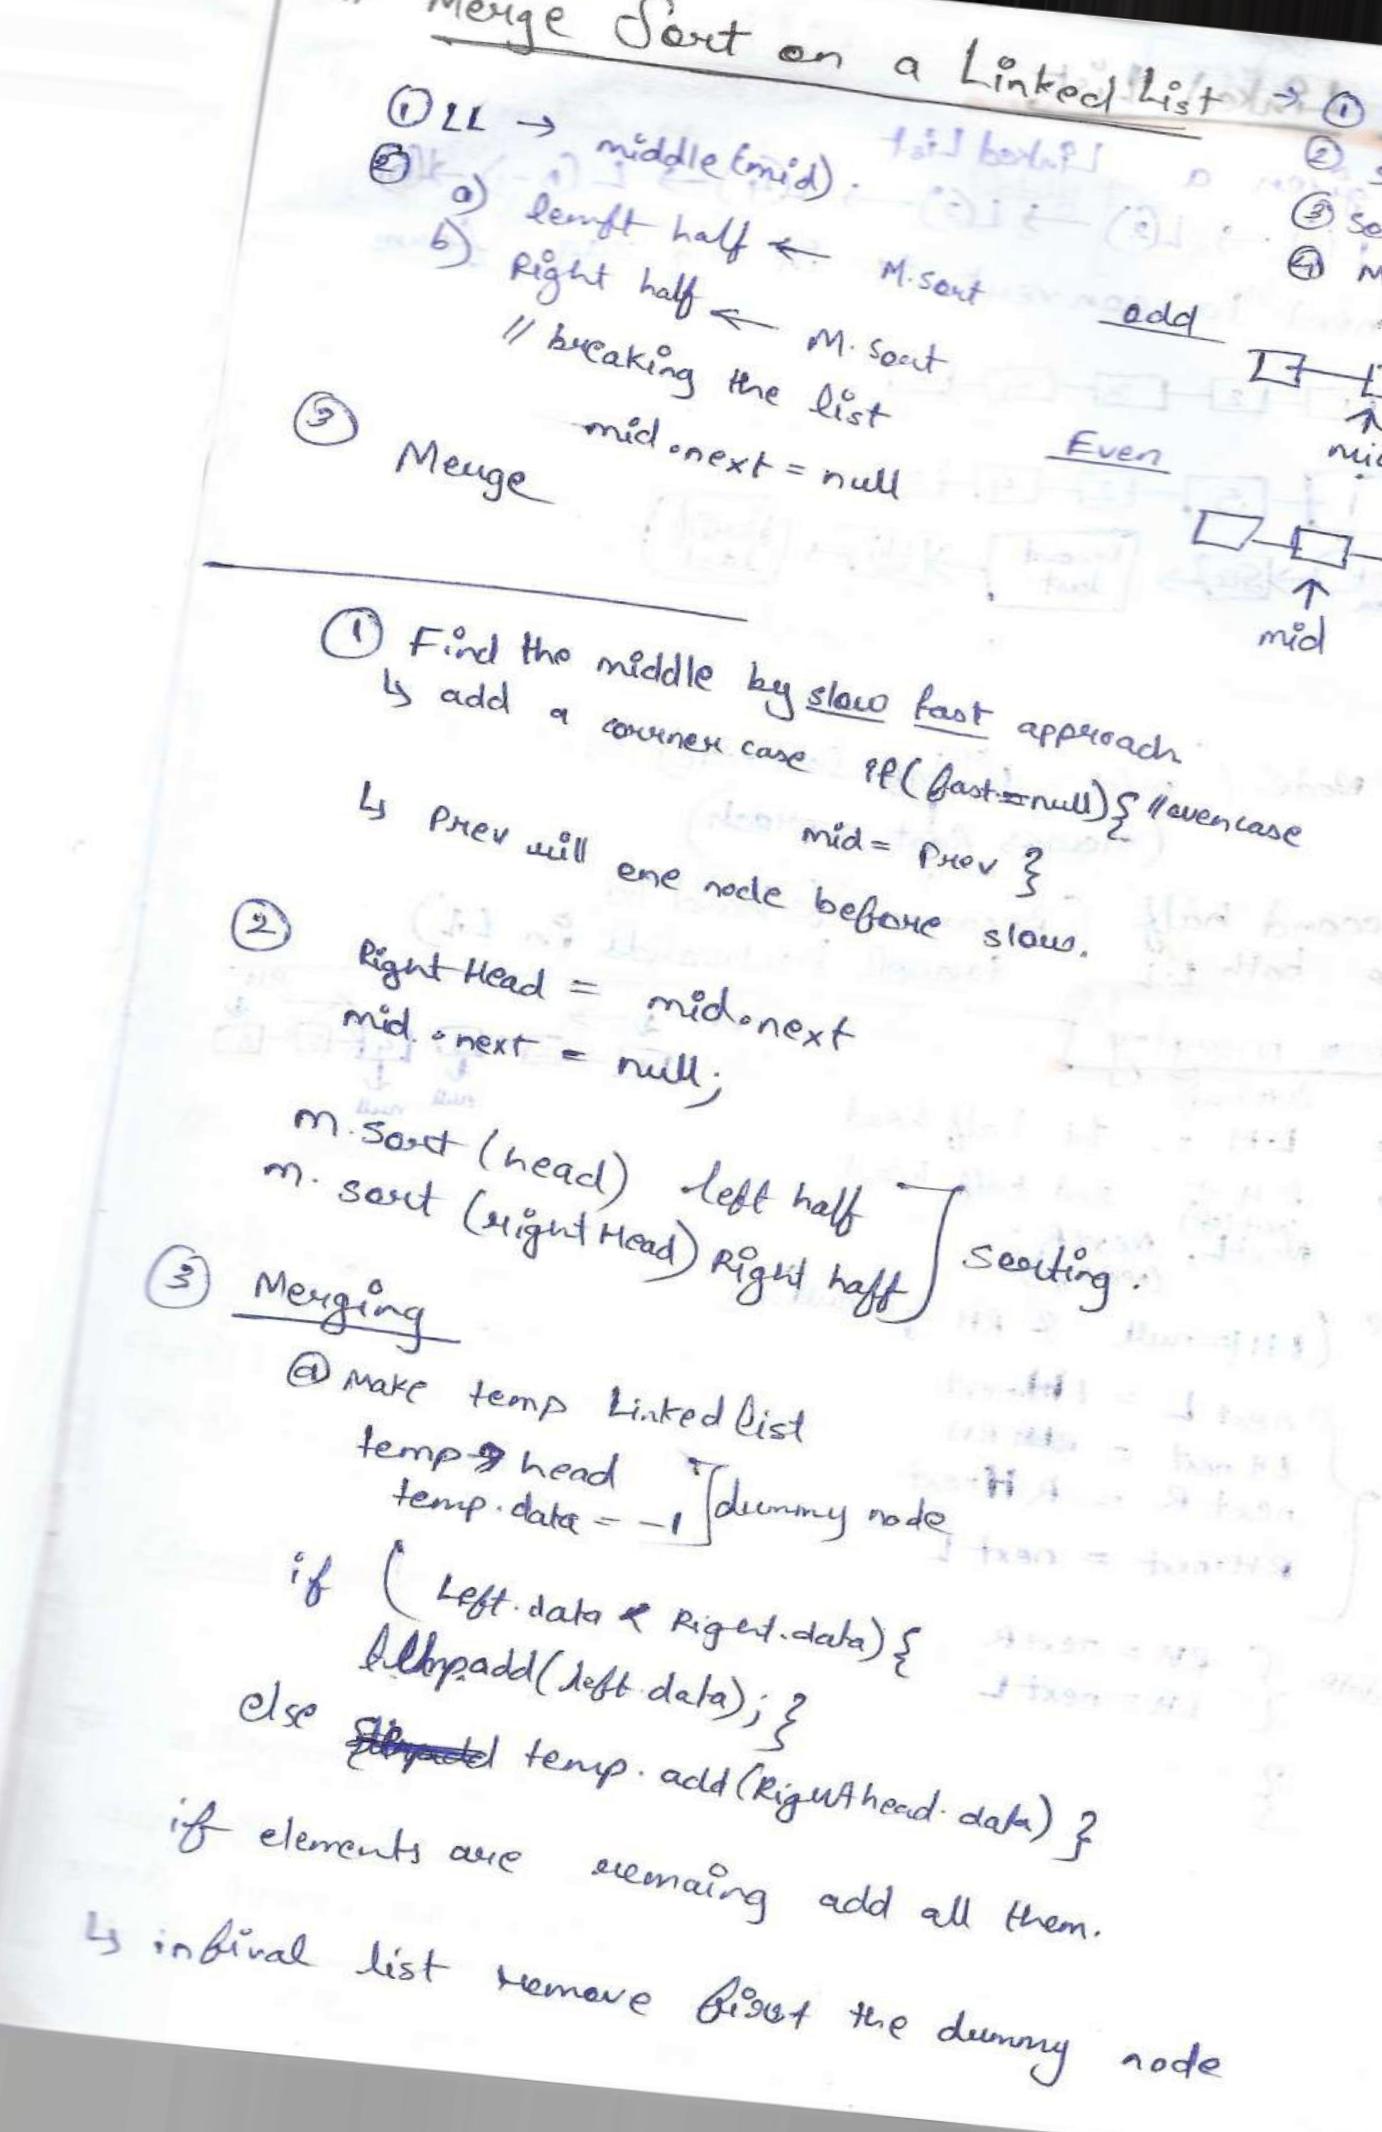 Merge Sort on a Linked List → ①
① LL → middle (mid).
②
②
a) lemft half ← M.sort
③ So
b) Right half ← M.sort
④ M
// breaking the list
mid.next = null
③ Merge
odd
mid
Even
mid
① Find the middle by slow fast approach
↳ add a corner case if(fast==null){ //evencase
mid = Prev }
↳ Prev will one node before slow.
② Right Head = mid.next
mid.next = null;
m.sort (head) left half
m.sort (right Head) Right half
sorting.
③ Merging
ⓐ Make temp Linked list
temp → head
temp.data = -1
dummy node
if (Left.data < Right.data) {
temp.add(left.data); }
else temp.add(Righthead.data) }
if elements are remaing add all them.
↳ in final list remove first the dummy node